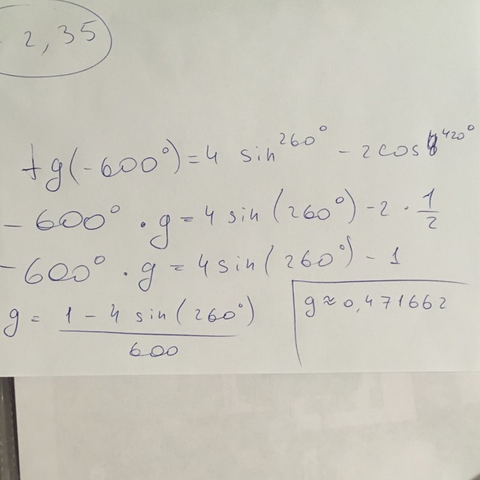 - 2,35
tg(-600°) = 4 sin 260° - 2 cos 420°
- 600° · g = 4 sin (260°) - 2 · 1/2
- 600° · g = 4 sin (260°) - 1
g = 1 - 4 sin (260°) / 600
g ≈ 0,471662